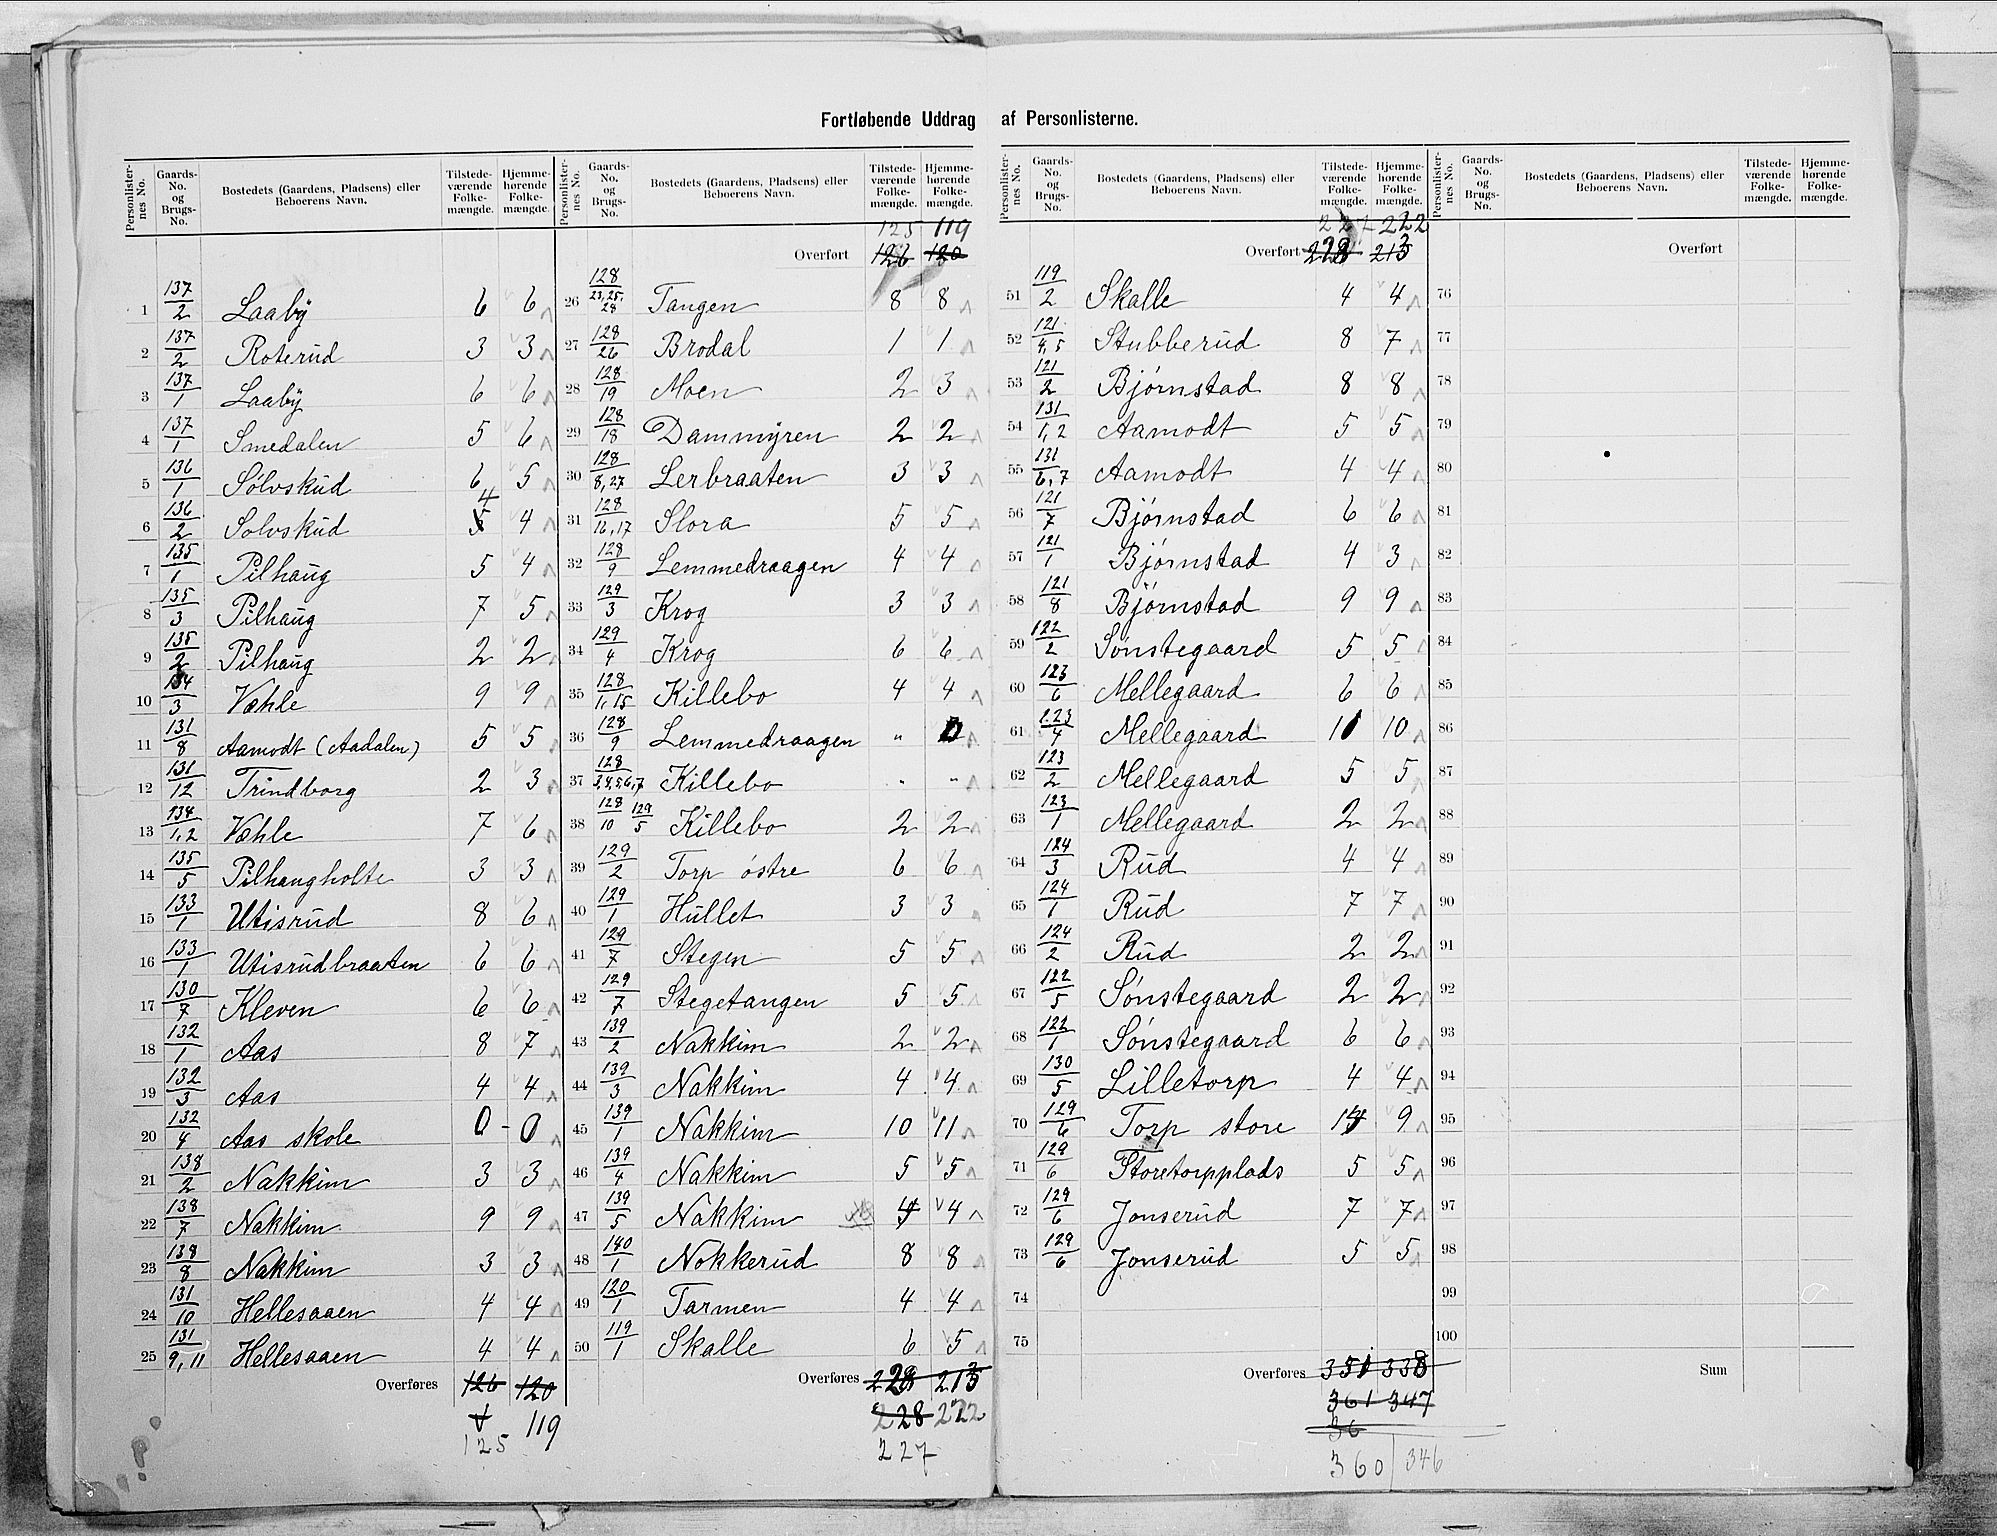 Fortløbende Uddrag af Personlisterne.
Personlister-nes No. Gaards-No. og Brugs-No. Bostedets (Gaardens, Pladsens) eller Beboerens Navn. Tilstede-værende Folke-mængde. Hjemme-hørende Folke-mængde.
1 137/2 Laaby 6 6
2 137/2 Roterud 3 3
3 137/1 Laaby 6 6
4 137/1 Smedalen 5 6
5 136/1 Sølvskud 6 5
6 136/2 Solvskud 4 4
7 135/1 Pilhaug 5 4
8 135/3 Pilhaug 7 5
9 135/2 Pilhaug 2 2
10 134/3 Væhle 9 9
11 131/8 Aamodt (Aadalen) 5 5
12 131/12 Trindborg 2 3
13 134/1,2 Væhle 7 6
14 135/5 Pilhaugholte 3 3
15 133/1 Utisrud 8 6
16 133/1 Utisrudbraaten 6 6
17 130/7 Kleven 6 6
18 132/1 Aas 8 7
19 132/3 Aas 4 4
20 132/4 Aas skole 0 - 0
21 138/2 Nakkim 3 3
22 138/7 Nakkim 9 9
23 138/8 Nakkim 3 3
24 131/10 Hellesaaen 4 4
25 131/9,11 Hellesaaen 4 4
Overføres 126 120
119
125
Personlister-nes No. Gaards-No. og Brugs-No. Bostedets (Gaardens, Pladsens) eller Beboerens Navn. Tilstede-værende Folke-mængde. Hjemme-hørende Folke-mængde.
125 119
Overført 126 120
26 128/23,25,28 Tangen 8 8
27 128/26 Brodal 1 1
28 128/19 Moen 2 3
29 128/18 Dammyren 2 2
30 128/8,27 Lerbraaten 3 3
31 128/16,17 Slora 5 5
32 128/9 Lemmedraagen 4 4
33 129/3 Krog 3 3
34 129/4 Krog 6 6
35 128/1,15 Killebo 4 4
36 128/9 Lemmedraagen " 0
37 128/3,4,5,6,7 Killebo " "
38 128/10 129/5 Killebo 2 2
39 129/2 Torp østre 6 6
40 129/1 Hullet 3 3
41 129/7 Stegen 5 5
42 129/7 Stegetangen 5 5
43 139/2 Nakkim 2 2
44 139/3 Nakkim 4 4
45 139/1 Nakkim 10 11
46 139/4 Nakkim 5 5
47 139/5 Nakkim 4 4
48 140/1 Nokkerud 8 8
49 120/1 Tarmen 4 4
50 119/1 Skalle 6 5
Overføres 228 213
228 222
227
Personlister-nes No. Gaards-No. og Brugs-No. Bostedets (Gaardens, Pladsens) eller Beboerens Navn. Tilstede-værende Folke-mængde. Hjemme-hørende Folke-mængde.
227 222
Overført 228 213
51 119/2 Skalle 4 4
52 121/4,5 Stubberud 8 7
53 121/2 Bjørnstad 8 8
54 131/1,2 Aamodt 5 5
55 131/6,7 Aamodt 4 4
56 121/7 Bjørnstad 6 6
57 121/1 Bjørnstad 4 3
58 121/8 Bjørnstad 9 9
59 122/2 Sønstegaard 5 5
60 123/6 Mellegaard 6 6
61 123/4 Mellegaard 10 10
62 123/2 Mellegaard 5 5
63 123/1 Mellegaard 2 2
64 124/3 Rud 4 4
65 124/1 Rud 7 7
66 124/2 Rud 2 2
67 122/5 Sønstegaard 2 2
68 122/1 Sønstegaard 6 6
69 130/5 Lilletorp 4 4
70 129/6 Torp store 9
71 129/6 Storetorpplads 5 5
72 129/6 Jonserud 7 7
73 129/6 Jonserud 5 5
74
75
Overføres 351 338
361 347
36
360 346
Personlister-nes No. Gaards-No. og Brugs-No. Bostedets (Gaardens, Pladsens) eller Beboerens Navn. Tilstede-værende Folke-mængde. Hjemme-hørende Folke-mængde.
Overført
76
77
78
79
80
81
82
83
84
85
86
87
88
89
90
91
92
93
94
95
96
97
98
99
100
Sum